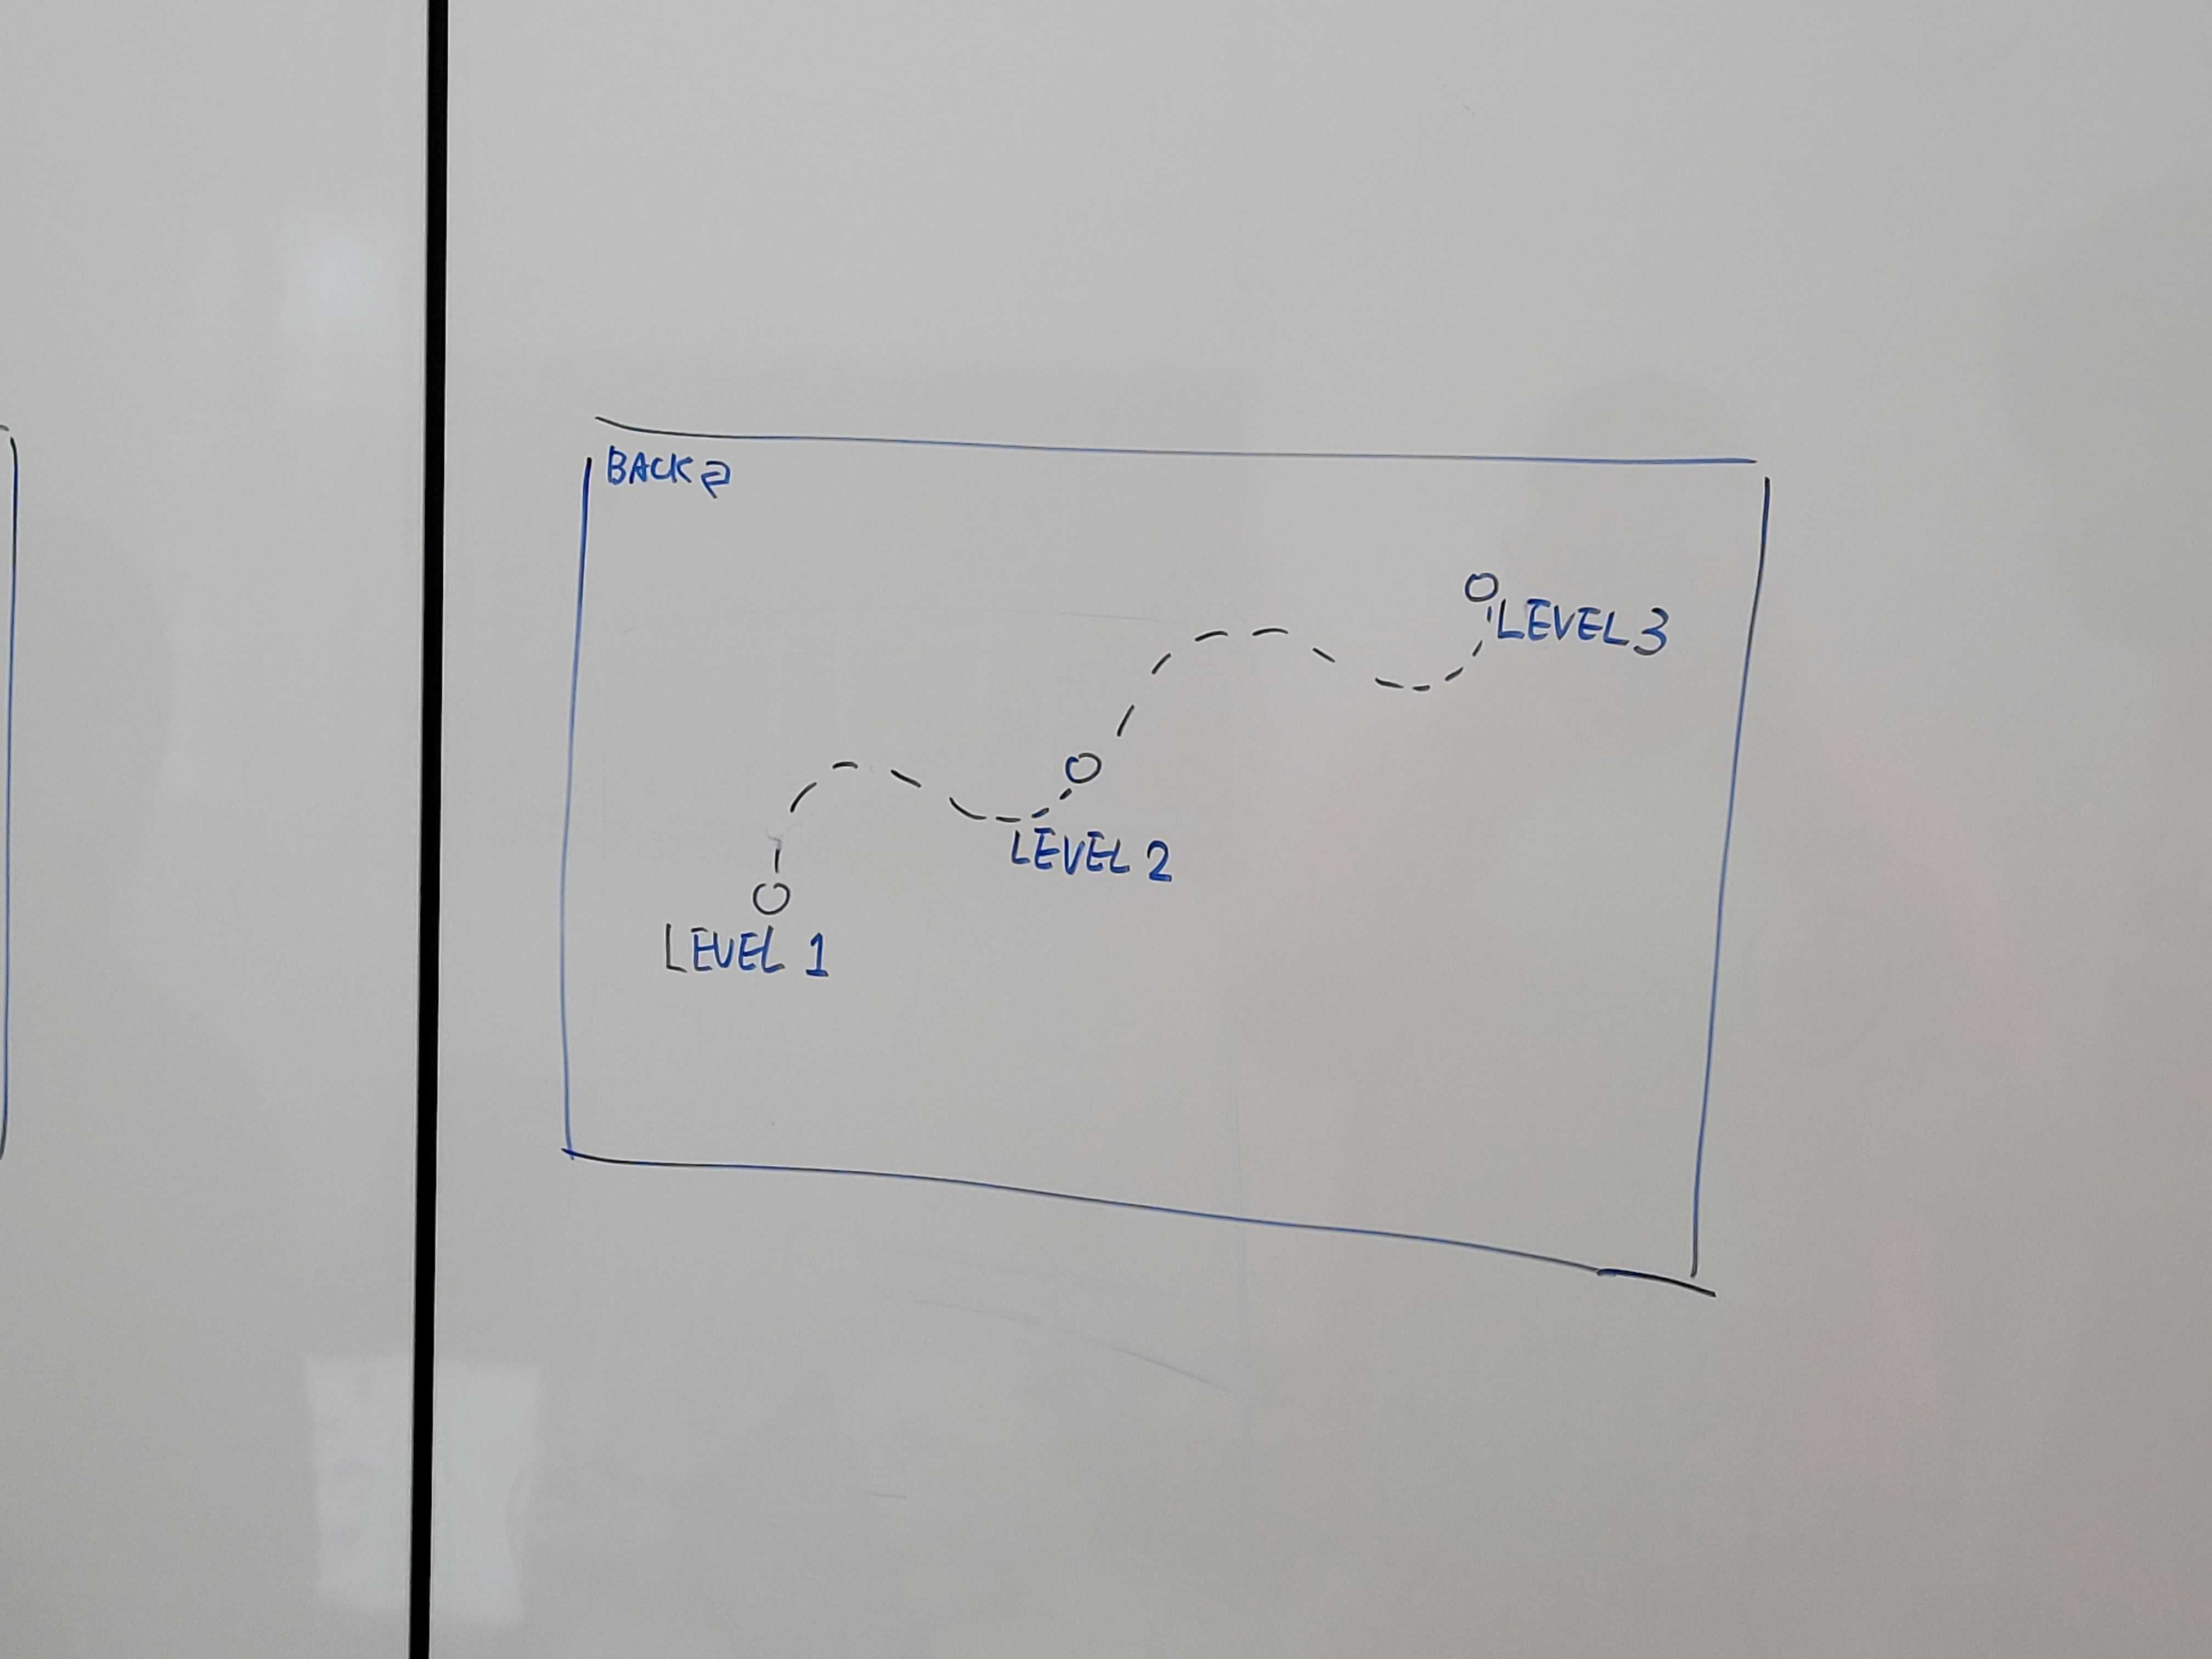 BACK
LEVEL 3
LEVEL 2
LEVEL 1